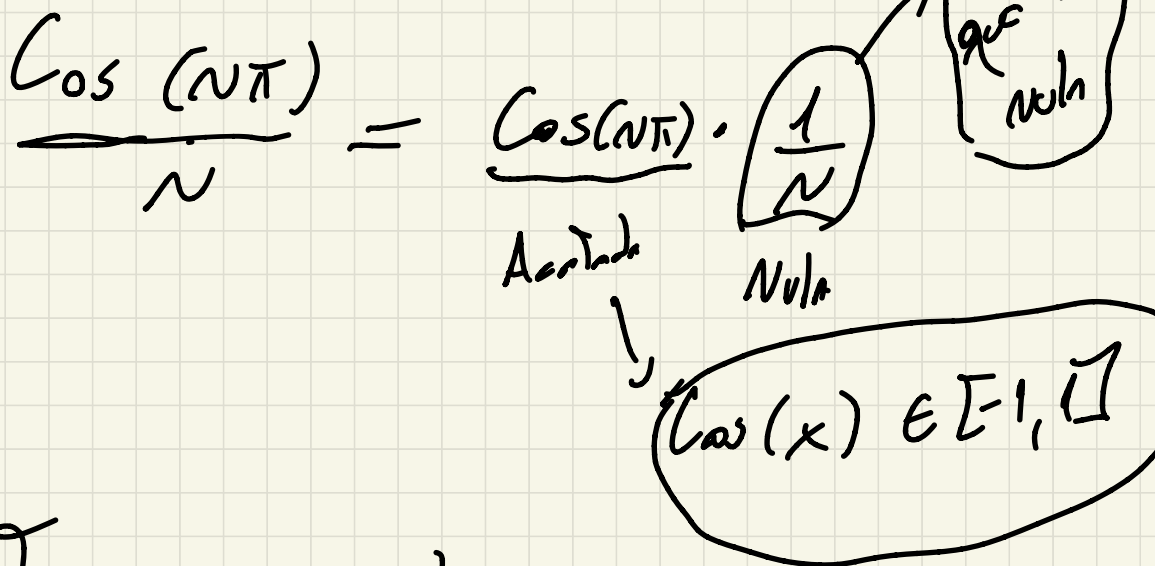 Cos (Nπ)
N
= Cos(Nπ) · 1
N
que
nula
Acotada
Nula
Cos(x) ∈ [-1, 1]